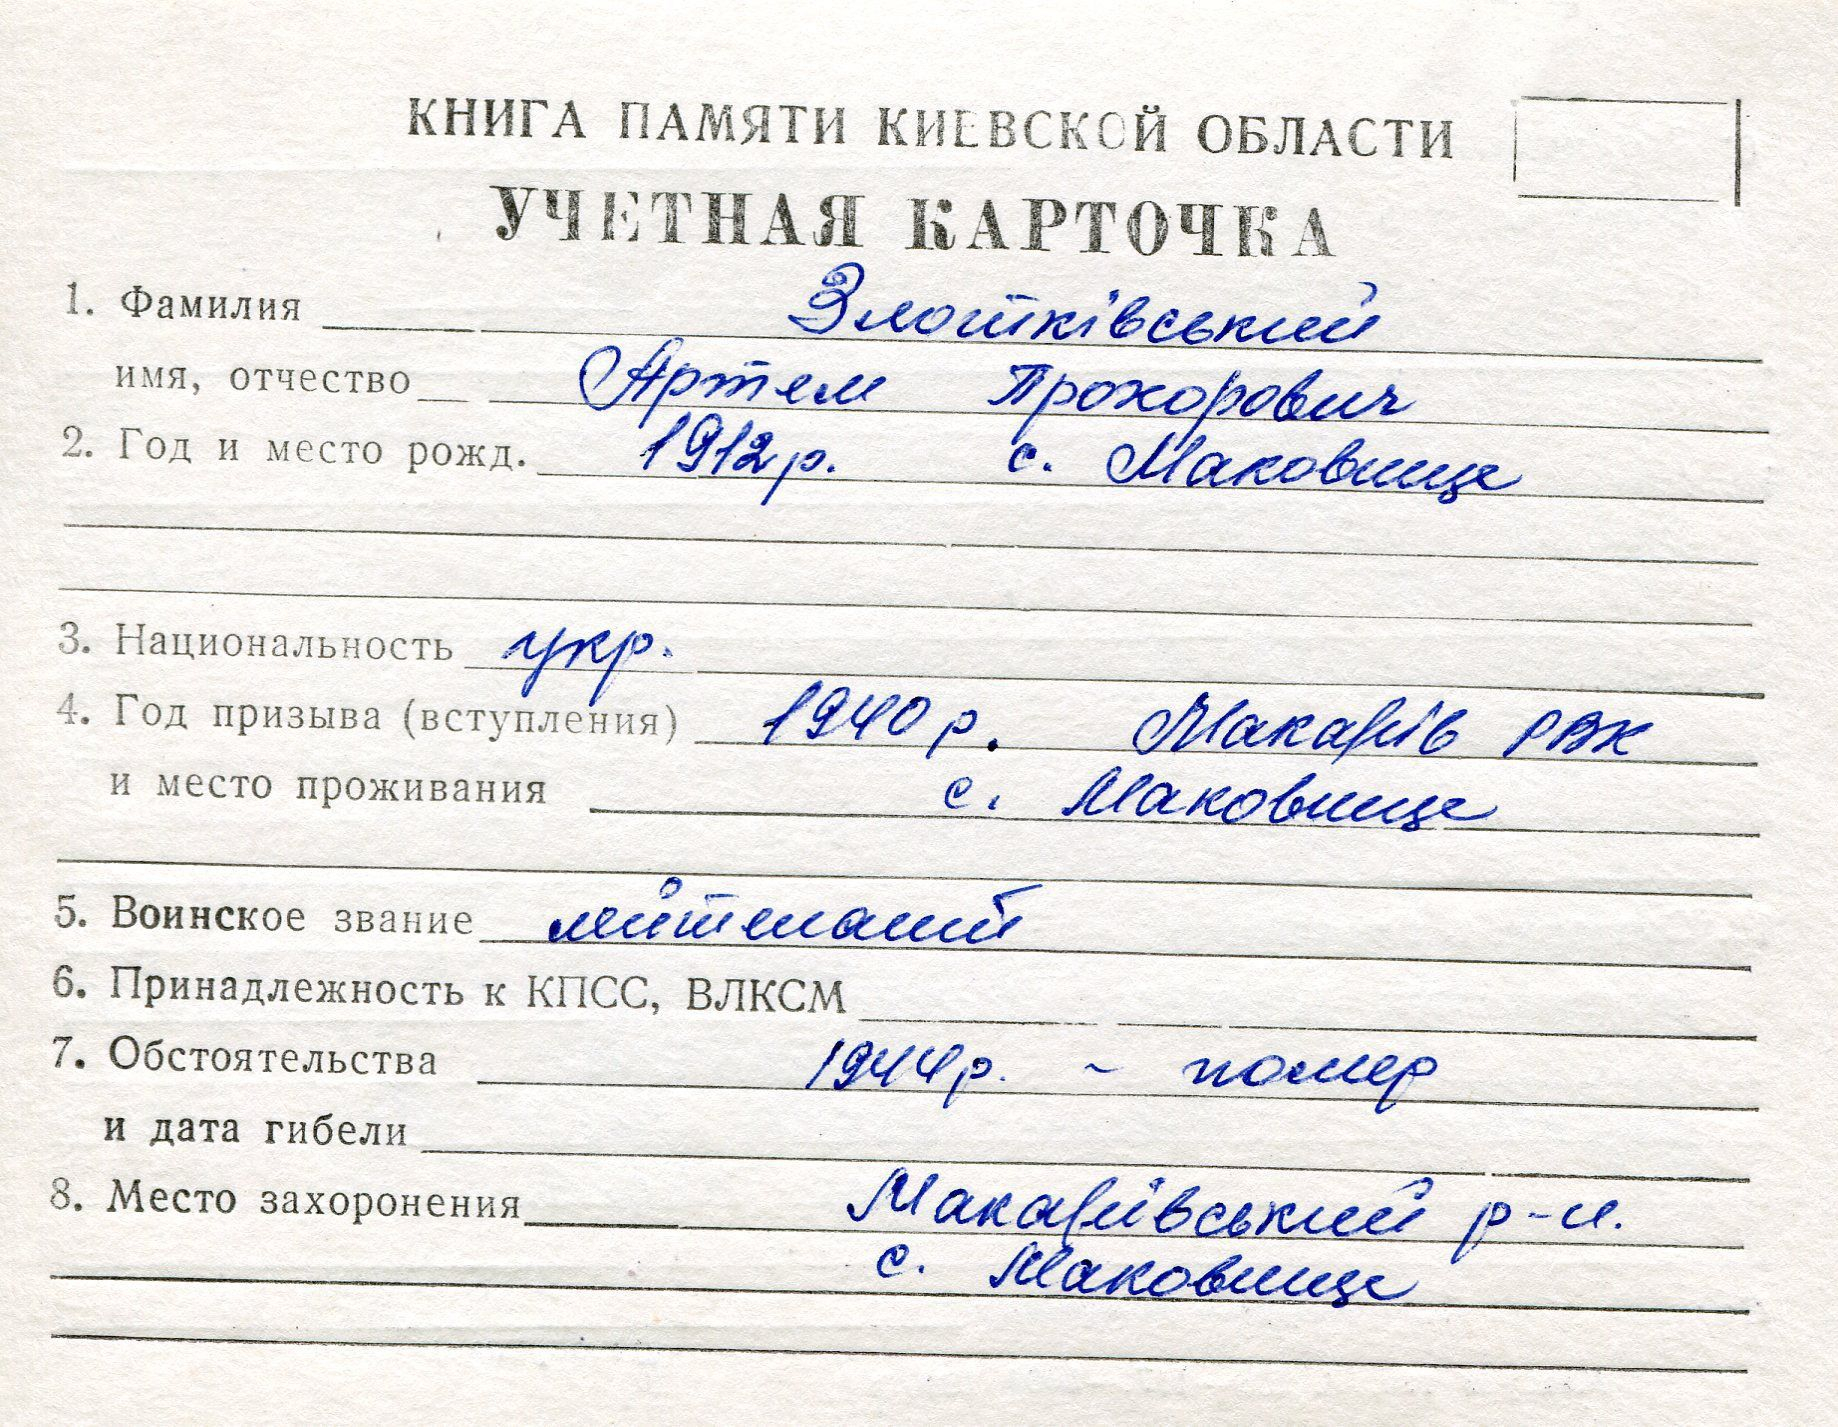 КНИГА ПАМЯТИ КИЕВСКОЙ ОБЛАСТИ
УЧЕТНАЯ КАРТОЧКА
1. Фамилия Злотківський
имя, отчество Артем Прохорович
2. Год и место рожд. 1912 р. с. Маковище
3. Национальность укр.
4. Год призыва (вступления) 1940 р. Макарів РВК
и место проживания с. Маковище
5. Воинское звание лейтенант
6. Принадлежность к КПСС, ВЛКСМ
7. Обстоятельства 1944 р. - помер
и дата гибели
8. Место захоронения Макарівський р-н.
с. Маковище